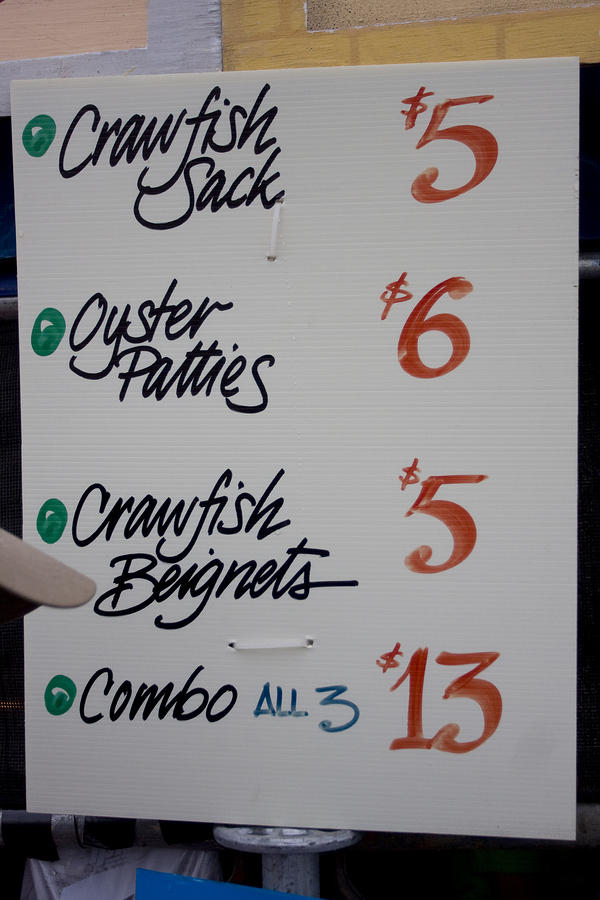 Crawfish $5
Sack
Oyster $6
Patties
Crawfish $5
Beignets
Combo ALL 3 $13